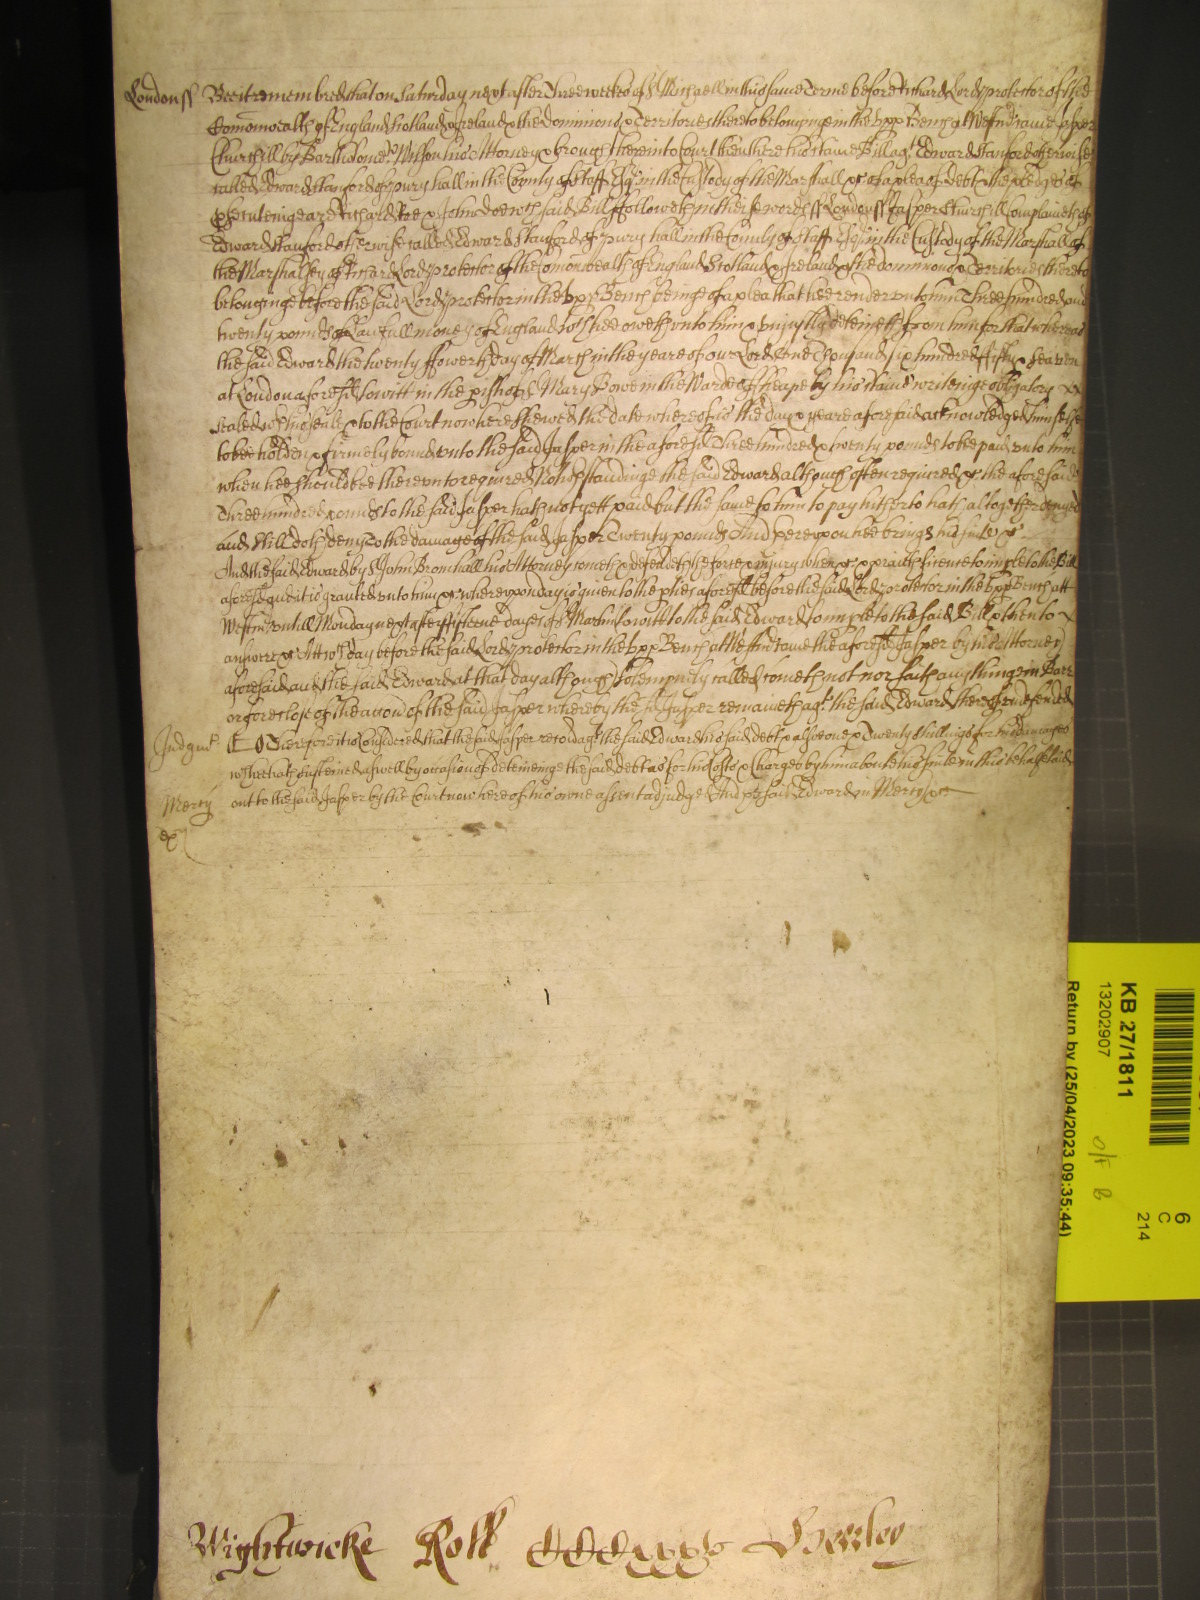 London ss Bee it remembred that on Saturday next after Three weekes of St Michaell in this same Terme before Richard Lord Protector of the
Comonwealth of England Scotland & Ireland & the dominions & Territories thereto belonginge in the upp Bench at Westmr came Jasper
Churchill by Bartholomew Wilson his Attorney & brought here into Court then there his tame Bill agt Edward Stanford otherwise
called Edward Stanford of pury hall in the County of Staff Esqr in the Custody of the Marshall &c of a plea of debt & the pledges of
& Richard Roe & John doe wch said Bill followeth in these words ss London ss Jasper Churchill Complaineth of
Edward Stanford otherwise called Edward Stanford of pury hall in the County of Staff Esqr in the Custody of the Marshall of
the Marshalsey of Richard Lord Protector of the Comonwealth of England Scotland & Ireland & the dominions & Territories thereto
belonginge before the said Lord Protector in the upp Bench beinge of a plea that hee render unto him Three hundred and
twenty pounds of lawfull money of England wch hee oweth unto him & unjustly deteineth from him for that whereas
the said Edward the twenty ffowerth day of March in the yeare of our Lord One Thousand six hundred ffifty & Seaven
at London aforesd to witt in the pish of St Mary Bowe in the Warde of Cheape by his tame writeinge obligatory
sealed wth his seale & to the Court now here shewed the date whereof is the day & yeare aforesaid acknowledged himselfe
to bee holden & firmely bound unto the said Jasper in the aforesd Three hundred & twenty pounds to bee paid unto him
when hee should bee thereunto required Notwthstandinge the said Edward although often required &c the aforesaid
Three hundred pounds to the said Jasper hath not yett paid but the same to him to pay hitherto hath altogether denyed
and still doth deny To the damage of the said Jasper Twenty pounds And hereupon hee brings his suite &c
And the said Edward by John Bromhall his Attorney cometh & defendeth the force & injury when &c & praieth licence to imple to the Bill
aforesd and it is granted unto him &c whereupon day is given to the pties aforesd before the said Lord Protector in the upp Bench att
Westmr untill Monday next after ffifteene dayes of St Martin to witt to the said Edward to imple to the said Bill & then to
answere &c Att wch day before the said Lord Protector in the upp Bench at Westmr came the aforesd Jasper by his Attorney
aforesaid and the said Edward at that day although solempnely called cometh not nor saith any thinge in Barr
or foreclose of the accon of the said Jasper whereby the sd Jasper remaineth agt the said Edward thereof undefended
Judgmt Therefore it is Considered that the said Jasper recover agt the said Edward his said debt & alsoe one & Twenty shillings for his damages
wch hee hath susteined aswell by occasion of deteininge the said debt as for his Costs & Charges by him about his suite in this behalfe laid
Mercy out to the said Jasper by the Court now here of his owne assent adjudged And the said Edward in Mercy &c
ex
Wightwicke Roll Hewley
KB 27/1811
13202907
Return by (25/04/2023 09:35:44)
O/F B
6
C
214